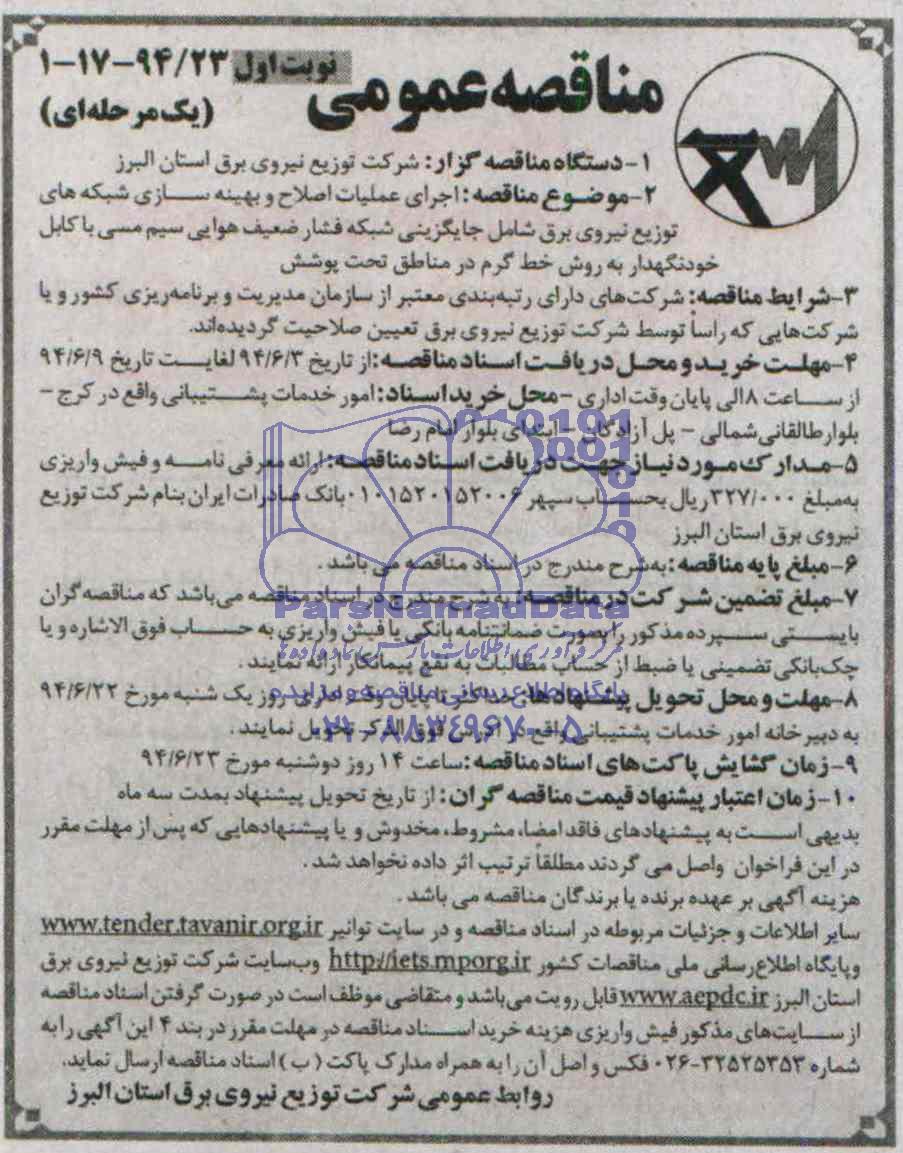 مناقصه عمومی
نوبت اول ۹۴/۲۳-۱۷-۱
(یک مرحله‌ای)
۱-دستگاه مناقصه گزار: شرکت توزیع نیروی برق استان البرز
۲-موضوع مناقصه: اجرای عملیات اصلاح و بهینه سازی شبکه های
توزیع نیروی برق شامل جایگزینی شبکه فشار ضعیف هوایی سیم مسی با کابل
خودنگهدار به روش خط گرم در مناطق تحت پوشش
۳-شرایط مناقصه: شرکت‌های دارای رتبه‌بندی معتبر از سازمان مدیریت و برنامه‌ریزی کشور و یا
شرکت‌هایی که راساً توسط شرکت توزیع نیروی برق تعیین صلاحیت گردیده‌اند.
۴-مهلت خرید و محل دریافت اسناد مناقصه: از تاریخ ۹۴/۶/۳ لغایت تاریخ ۹۴/۶/۹
از ساعت ۸ الی پایان وقت اداری - محل خرید اسناد: امور خدمات پشتیبانی واقع در کرج -
بلوار طالقانی شمالی - پل آزادگان - ابتدای بلوار امام رضا
۵-مدارک مورد نیاز جهت دریافت اسناد مناقصه: ارائه معرفی نامه و فیش واریزی
به‌مبلغ ۳۲۷/۰۰۰ریال بحساب سپهر ۰۱۰۱۵۲۰۱۵۲۰۰۶ بانک صادرات ایران بنام شرکت توزیع
نیروی برق استان البرز
۶-مبلغ پایه مناقصه: به‌شرح مندرج در اسناد مناقصه می باشد .
۷-مبلغ تضمین شرکت در مناقصه: به شرح مندرج در اسناد مناقصه می‌باشد که مناقصه گران
بایستی سپرده مذکور را بصورت ضمانتنامه بانکی یا فیش واریزی به حساب فوق الاشاره و یا
چک بانکی تضمینی یا ضبط از حساب مطالبات به نفع پیمانکار ارائه نمایند .
۸-مهلت و محل تحویل پیشنهادها: حداکثر تا پایان وقت اداری روز یک شنبه مورخ ۹۴/۶/۲۲
به دبیرخانه امور خدمات پشتیبانی واقع در آدرس فوق الذکر تحویل نمایند .
۹-زمان گشایش پاکت‌های اسناد مناقصه: ساعت ۱۴ روز دوشنبه مورخ ۹۴/۶/۲۳
۱۰-زمان اعتبار پیشنهاد قیمت مناقصه گران: از تاریخ تحویل پیشنهاد بمدت سه ماه
بدیهی است به پیشنهادهای فاقد امضا، مشروط، مخدوش و یا پیشنهادهایی که پس از مهلت مقرر
در این فراخوان واصل می گردند مطلقاً ترتیب اثر داده نخواهد شد .
هزینه آگهی بر عهده برنده یا برندگان مناقصه می باشد .
سایر اطلاعات و جزئیات مربوطه در اسناد مناقصه و در سایت توانیر www.tender.tavanir.org.ir
وپایگاه اطلاع‌رسانی ملی مناقصات کشور http://iets.mporg.ir وب‌سایت شرکت توزیع نیروی برق
استان البرز www.aepdc.ir قابل رویت می‌باشد و متقاضی موظف است در صورت گرفتن اسناد مناقصه
از سایت‌های مذکور فیش واریزی هزینه خرید اسناد مناقصه در مهلت مقرر در بند ۴ این آگهی را به
شماره ۳۲۵۲۵۳۵۳-۰۲۶ فکس و اصل آن را به همراه مدارک پاکت ( ب ) اسناد مناقصه ارسال نماید.
روابط عمومی شرکت توزیع نیروی برق استان البرز
ParsNamadData
مرکز فرآوری اطلاعات پارس نماد داده ها
پایگاه اطلاع رسانی مناقصه و مزایده
۰۲۱-۸۸۳۴۹۶۷۰-۵